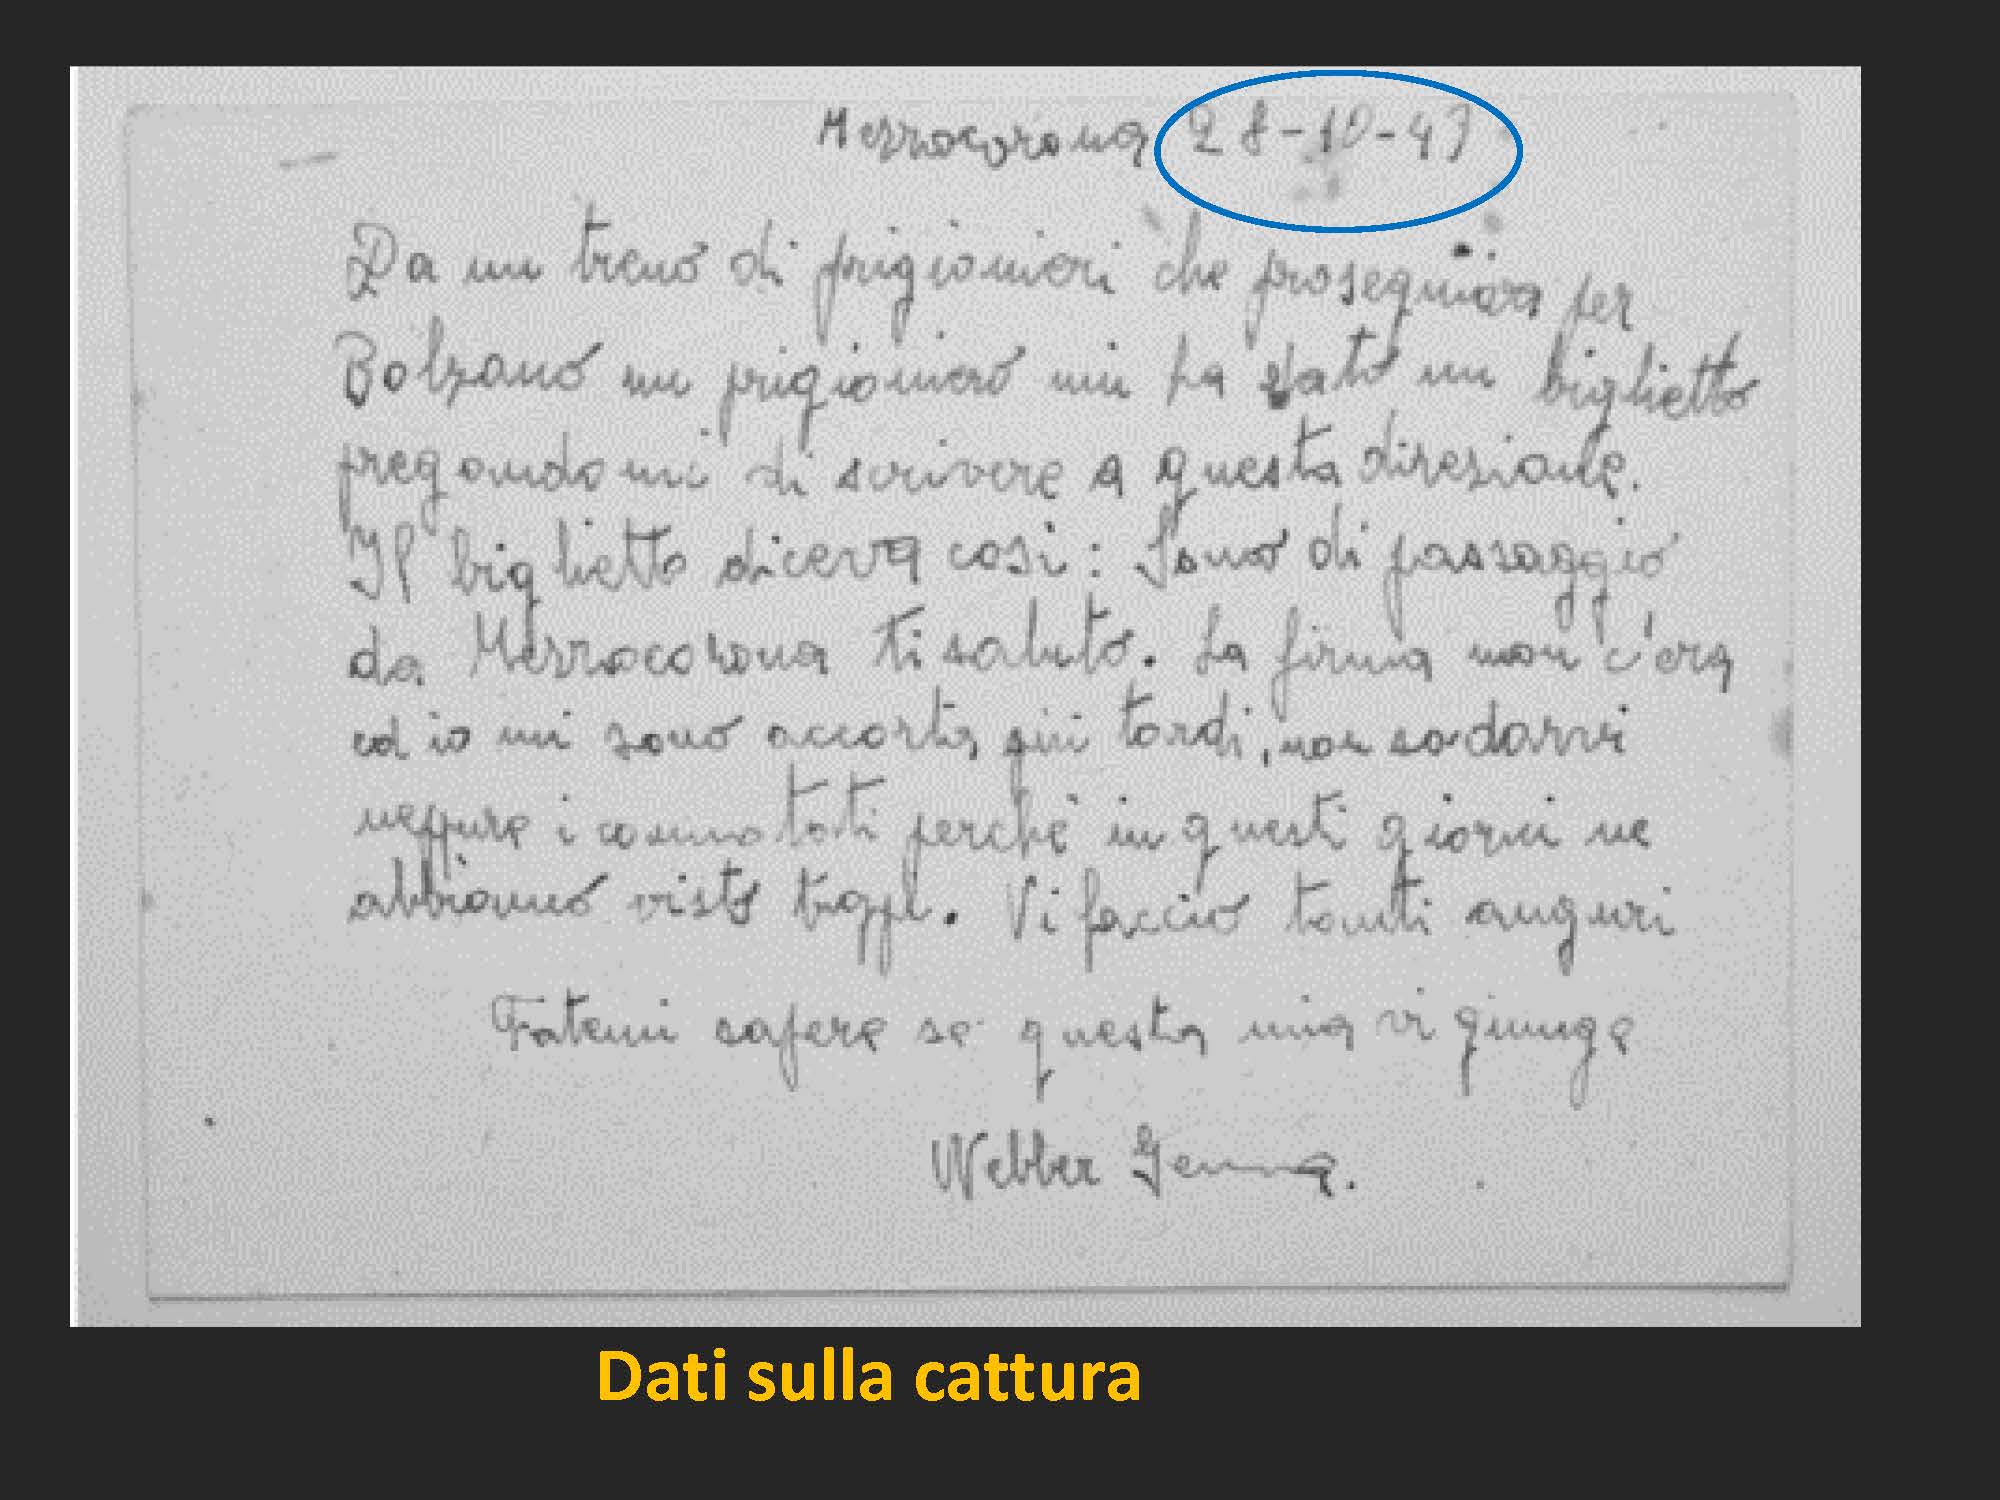 Mezzocorona 28-10-43
Da un treno di prigionieri che proseguiva per
Bolzano un prigioniero mi ha dato un biglietto
pregandomi di scrivere a questa direzione.
Il biglietto diceva così: Sono di passaggio
da Mezzocorona ti saluto. La firma non c'era
ed io mi sono accorta più tardi, non so darvi
neppure i connotati perchè in questi giorni ne
abbiamo visto troppi. Vi faccio tanti auguri
Fatemi sapere se questa mia vi giunge
Webber Gemma.
Dati sulla cattura